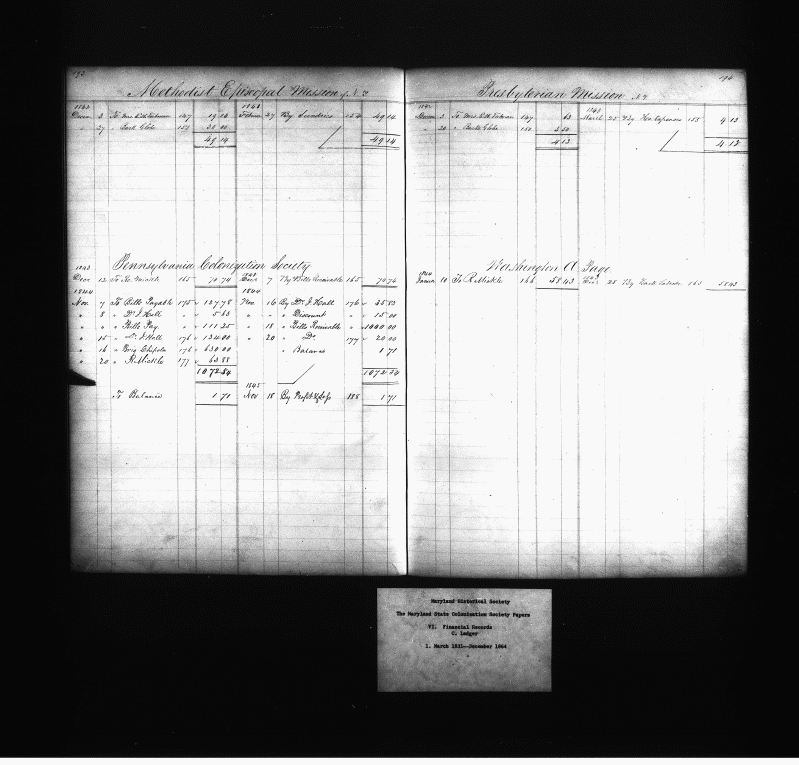 Methodist Episcopal Mission
1843 1843
2 To Mrs. 147 19 14 27 By Sundries 154 49 14
" 27 " Bark Globe 151 30 00
49 14 49 14
Pennsylvania Colonization Society
1843 1843
Decr 12 To 165 70 74 Decr 7 By Bills Receivable 165 70 74
1844 1844
Nov 7 To Bills Payable 175 127 78 Nov 16 By Dr. J. Hall 176 35 83
" 8 " Dr. J. Hall " 5 63 " " " Discount " 15 00
" " " Bills Pay. " 111 25 " 18 " Bills Receivable " 1000 00
" 15 " Dr. J. Hall 176 134 00 " 20 " Do. 177 20 00
" 16 " Brig Chipola 176 630 00 " Balance 1 71
" 20 " R. Mickle 177 63 88
1072 54 1072 54
1845
To Balance 1 71 Nov 18 By Profit & Loss 188 1 71
194
Presbyterian Mission
1843
2 To Mrs. 147 63 March 25 By 155 4 13
" 20 " Bark Globe 150 3 50
4 13 4 13
Washington A. Page
1844 1843
10 To R. Mickle 166 58 43 Decr 25 By 165 58 43
Maryland Historical Society
The Maryland State Colonization Society Papers
VI. Financial Records
C. Ledger
1. March 1831--December 1864